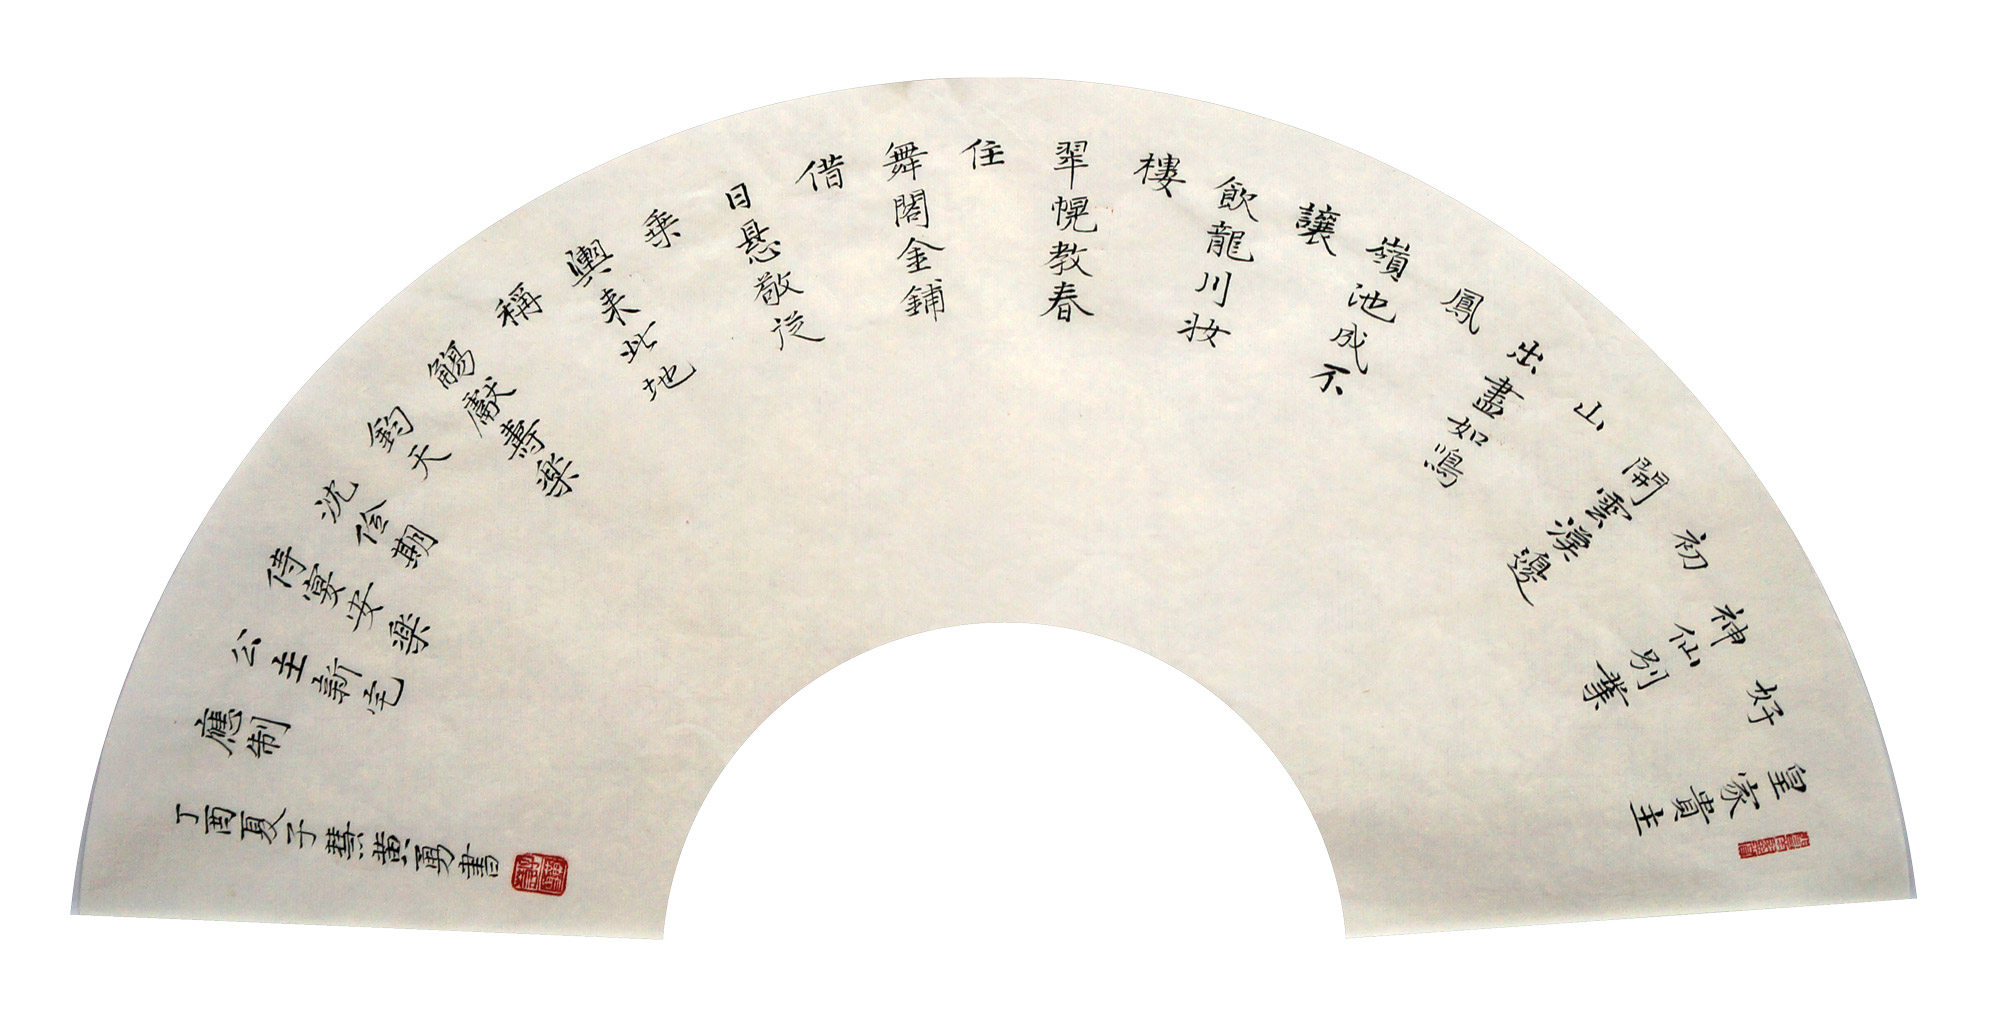 皇家貴主
好
神仙別業
初
開雲漢邊
山
出盡如鳴
鳳
嶺池成不
讓
飲龍川妝
樓
翠幌教春
住
舞閣金鋪
借
日悬敬從
乘
輿来此地
稱
觴獻壽樂
鈞天
沈佺期
侍宴安樂
公主新宅
應制
丁酉夏子黄勇書